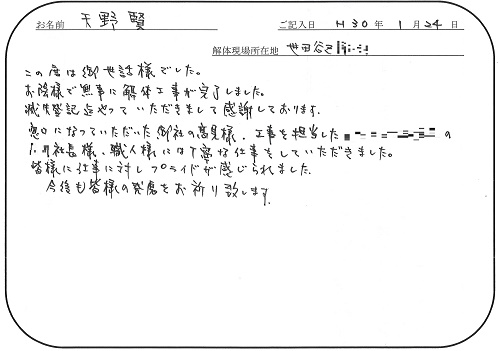 お名前 天野 賢 ご記入日 H30年 1月24日
解体現場所在地 世田谷区
この度は御世話様でした。
お陰様で無事に解体工事が完了しました。
滅失登記迄やっていただきまして感謝しております。
窓口になっていただいた御社の高見様、工事を担当した の
社長様、職人様には丁寧な仕事をしていただきました。
皆様に仕事に対しプライドが感じられました。
今後も皆様の発展をお祈り致します